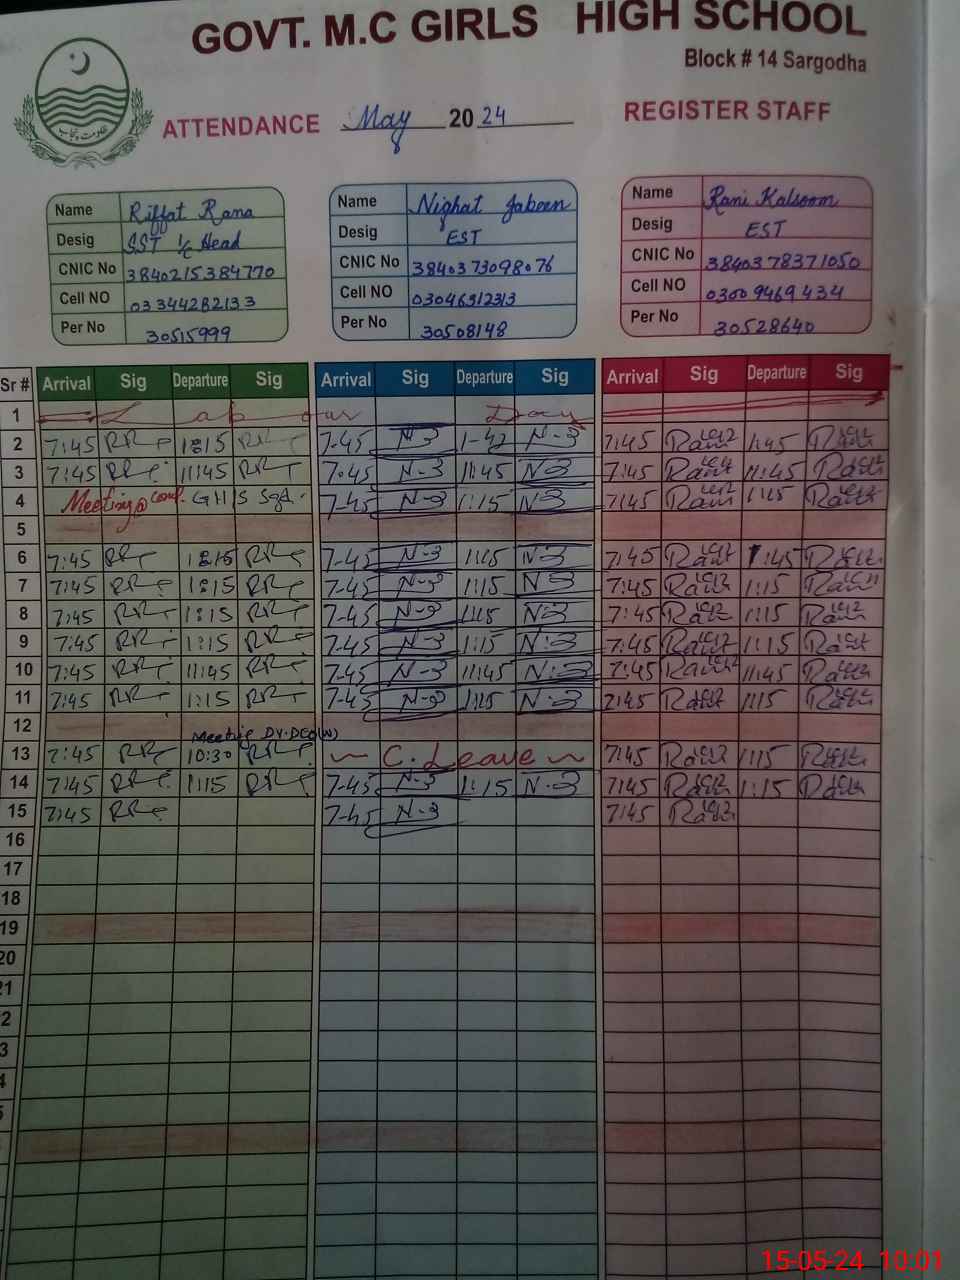 GOVT. M.C GIRLS HIGH SCHOOL
Block # 14 Sargodha
حکومت پنجاب
ATTENDANCE May 2024 REGISTER STAFF
Name Riffat Rana Name Nighat Jabeen Name Rani Kalsoom
Desig SST I/C Head Desig EST Desig EST
CNIC No 3840215384770 CNIC No 3840373098076 CNIC No 3840378371050
Cell NO 03344282133 Cell NO 03046312313 Cell NO 03009469434
Per No 30515999 Per No 30508148 Per No 30528640
Sr # Arrival Sig Departure Sig Arrival Sig Departure Sig Arrival Sig Departure Sig
1 Labour Day
2 7:45 1:15 7-45 N-3 1-42 N-3 7:45 1:45
3 7:45 11:45 7:45 N-3 11:45 N-3 7:45 11:45
4 Meeting@ conf. GHS Sgd. 7-45 N-3 1:15 N-3 7:45 1:45
5
6 7:45 1:15 7-45 N-3 1:15 N-3 7:45 1:45
7 7:45 1:15 7-45 N-3 1:15 N-3 7:45 1:15
8 7:45 1:15 7-45 N-3 1:15 N-3 7:45 1:15
9 7:45 1:15 7-45 N-3 1:15 N-3 7:45 1:15
10 7:45 11:45 7-45 N-3 11:45 N-3 7:45 11:45
11 7:45 1:15 7-45 N-3 1:15 N-3 7:45 1:15
12
Meeting DY.DEO(W)
13 7:45 10:30 ~ C.Leave ~ 7:45 1:15
14 7:45 1:15 7-45 N-3 1:15 N-3 7:45 1:15
15 7:45 7-45 N-3 7:45
16
17
18
19
20
21
2
3
4
5
15-05-24 10:01